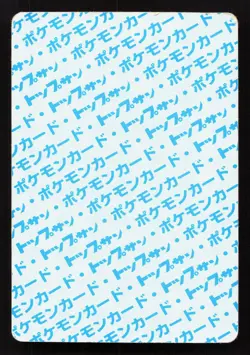 ポケモンカード・
ポケモンカード・トップサン
・トップサン・ポケモンカード
ポケモンカード・トップサン・
トップサン・ポケモンカード・
ポケモンカード・トップサン・
・トップサン・ポケモンカード
ポケモンカード・トップサン・
トップサン・ポケモンカード・
ポケモンカード・トップサン・
・トップサン・ポケモンカード
ポケモンカード・トップサン・
トップサン・ポケモンカード・
ポケモンカード・